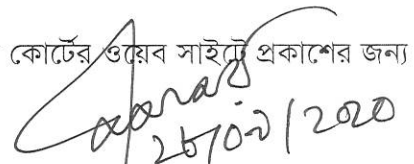 কোর্টের ওয়েব সাইটে প্রকাশের জন্য
২৮/০২/২০২০